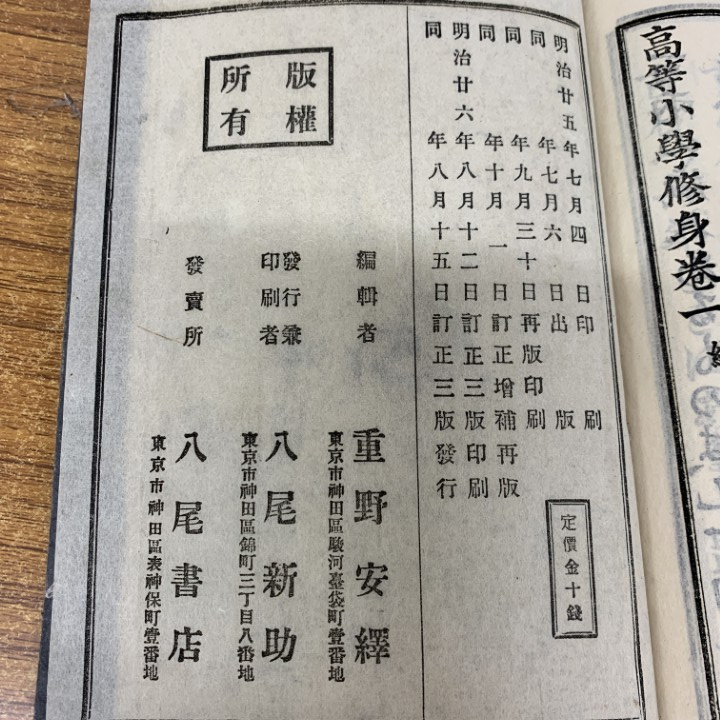 高等小學修身卷一
明治廿五年七月四日印刷
同年七月六日出版
同年九月三十日再版印刷
同年十月一日訂正增補再版
明治廿六年八月十二日訂正三版印刷
同年八月十五日訂正三版發行
定價金十錢
版權
所有
編輯者 重野安繹
東京市神田區駿河臺袋町壹番地
發行兼
印刷者 八尾新助
東京市神田區錦町三丁目八番地
發賣所 八尾書店
東京市神田區表神保町壹番地